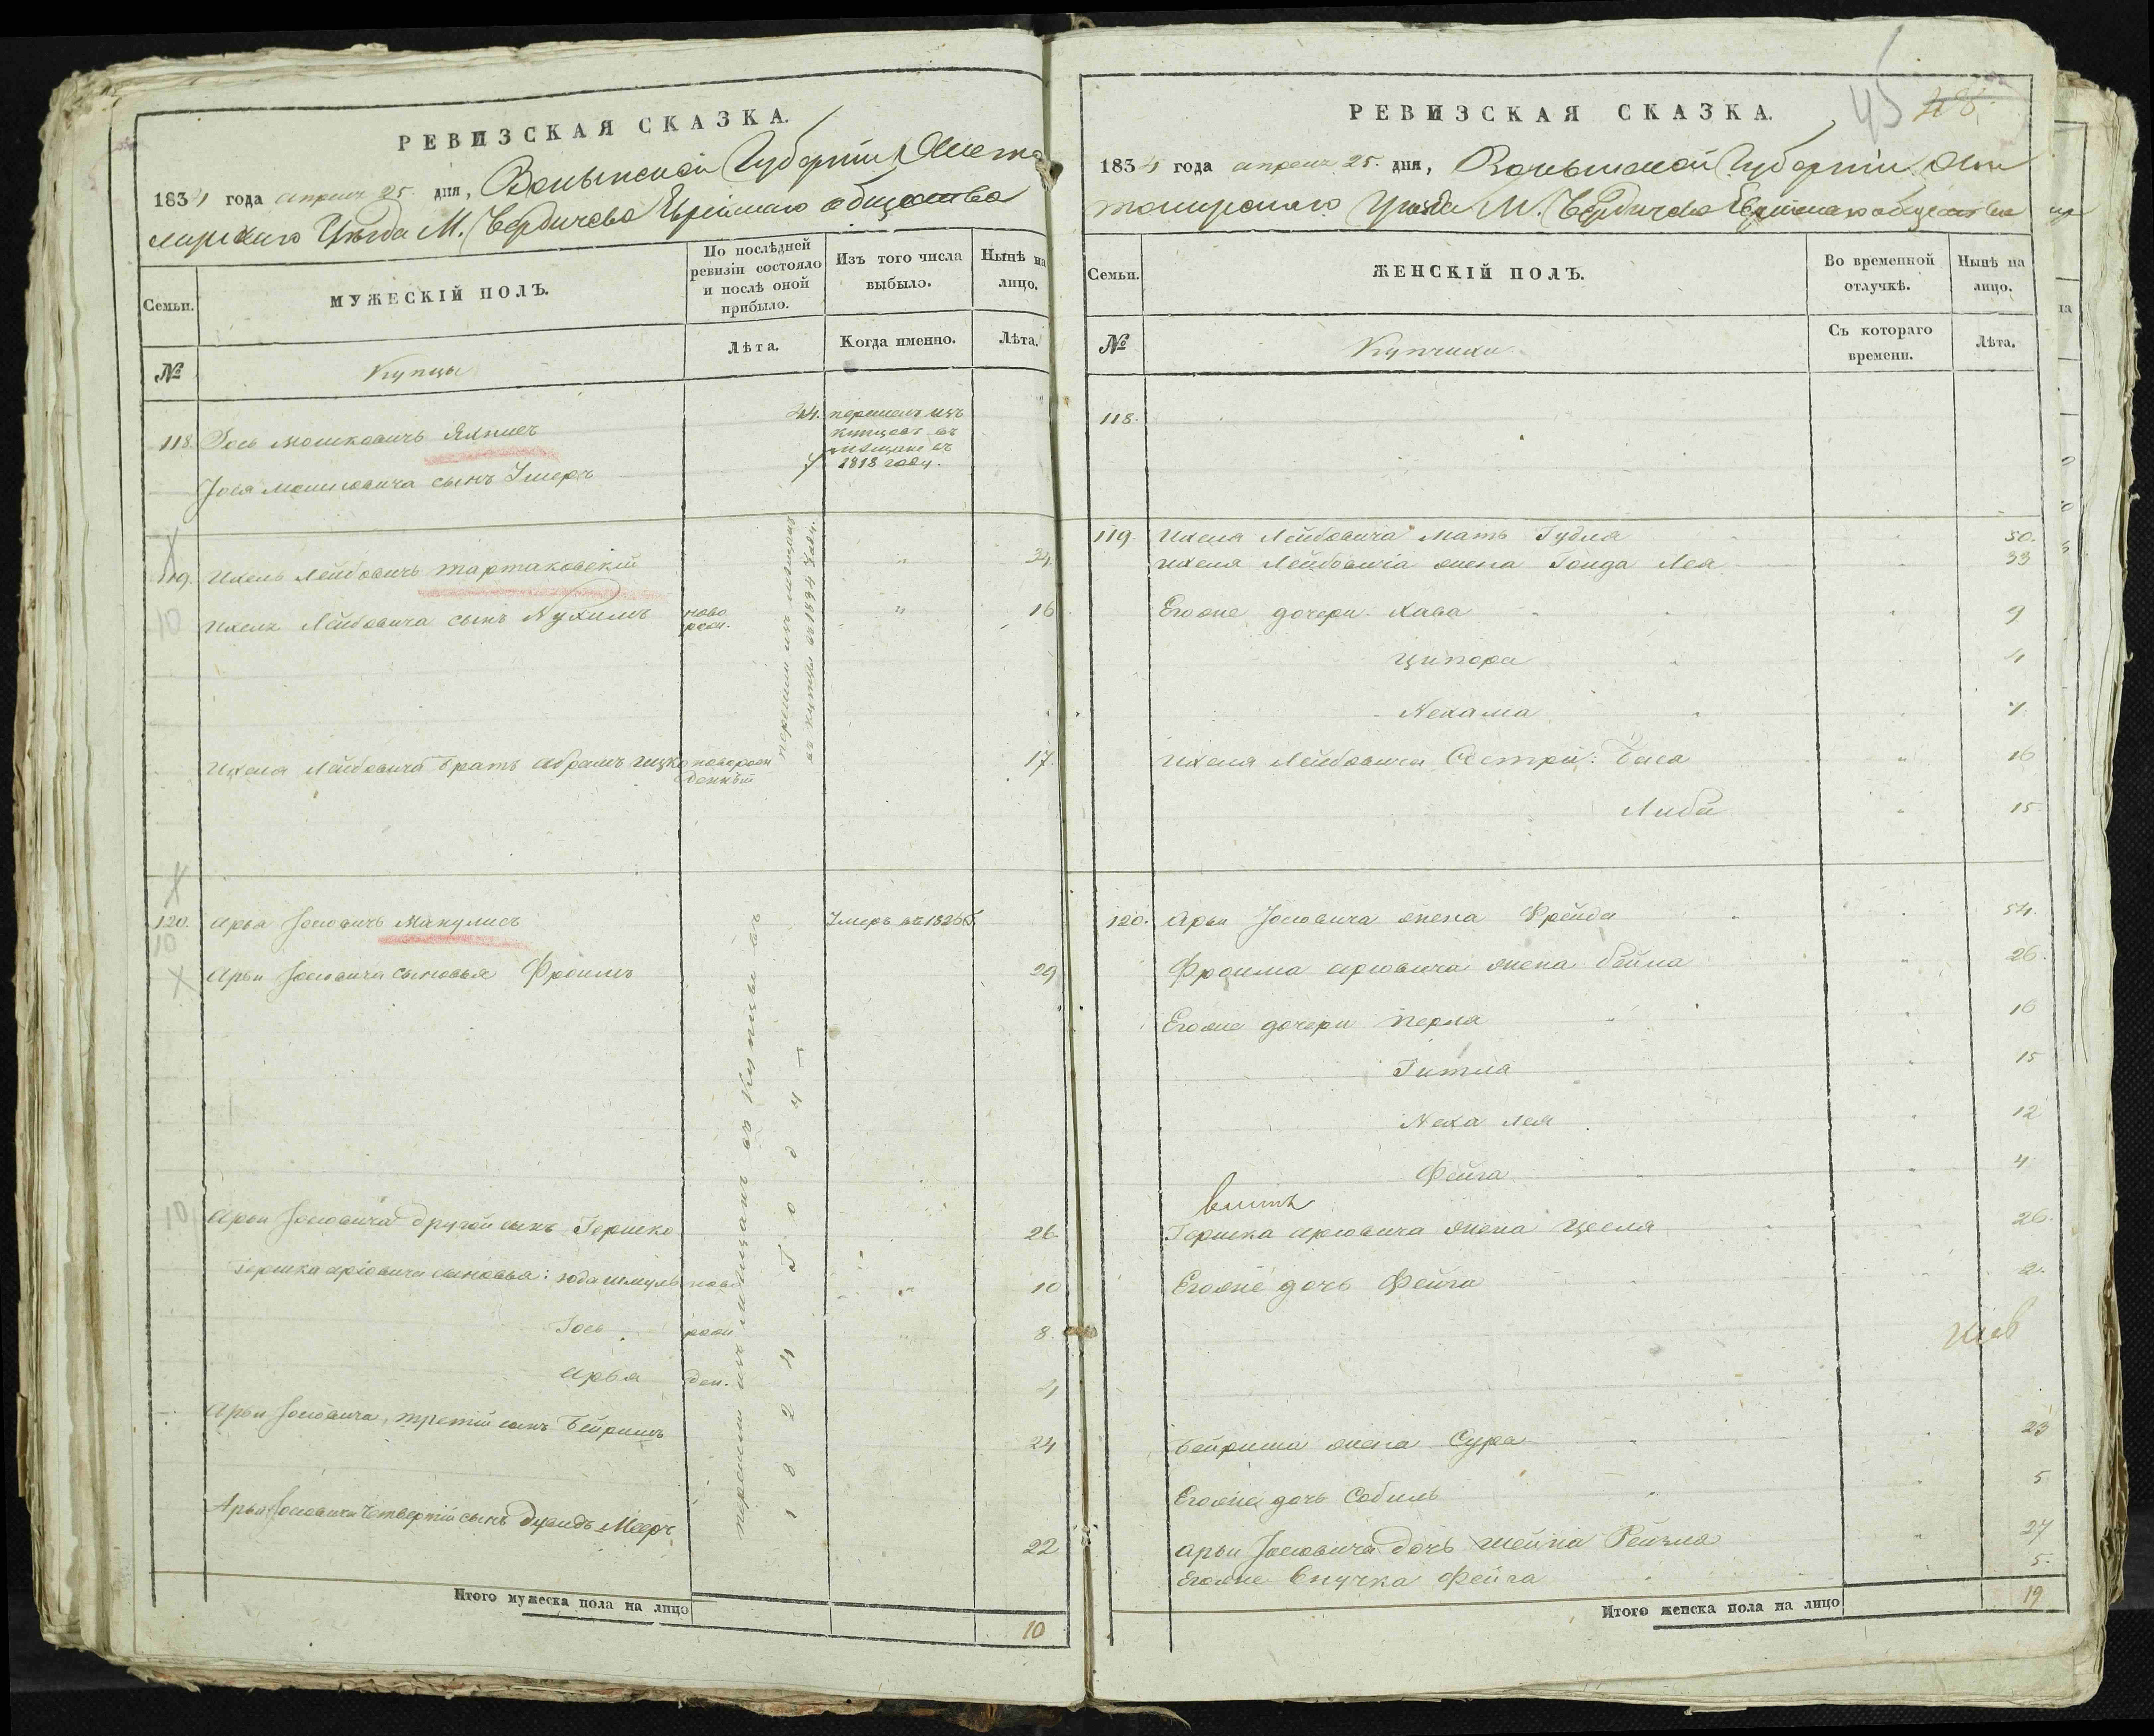 РЕВИЗСКАЯ СКАЗКА.
1834 года апреля 25. дня, Волынской Губернии Жито
мирскаго Уѣзда М. Бердичева Еврейскаго общества
Семьи.
МУЖЕСКІЙ ПОЛЪ.
По послѣдней ревизіи состояло и послѣ оной прибыло.
Изъ того числа выбыло.
Нынѣ на лицо.
№
Купцы
Лѣта.
Когда именно.
Лѣта.
118. Іось Мошковичъ
24. перешелъ изъ
купцовъ въ
мѣщане въ
1818 году.
Іося Мошковича сынъ Умеръ
119. Ихель Лейбовичъ Тартаковскій " 34
Ихеля Лейбовича сынъ Нухимъ ново рож. " 16
Ихеля Лейбовича братъ Абрамъ Ицко новорож
денный 17
перешли изъ мѣщанъ
въ купцы въ 1824 году.
120. Арья Іосіовичъ Макулисъ Умеръ въ 1826 г.
10
Арьи Іосіовича сыновья Фроимъ 29
10
Арьи Іосіовича другой сынъ Гершко 26
Гершка Аріовича сыновья: Юда Шмуль ново 10
Іось рож 8.
Арья ден. 4
Арьи Іосіовича, третій сынъ Бейришъ 24
Арьи Іосіовича четвертій сынъ Дувидъ Мееръ 22
перешли изъ мѣщанъ въ купцы въ
1824 Году
Итого мужеска пола на лицо
10
45
РЕВИЗСКАЯ СКАЗКА.
1834 года апреля 25. дня, Волынской Губерніи Жи
томирскаго Уѣзда М. Бердичева Еврейскаго общества
Семьи.
ЖЕНСКІЙ ПОЛЪ.
Во временной отлучкѣ.
Нынѣ на лицо.
№
Купчихи
Съ котораго времени.
Лѣта.
118.
119 Ихеля Лейбовича Мать Гудля 50.
Ихеля Лейбовича жена Голда Лея 33
Егоже дочери Хава 9
Ципора 4
Нехама
Ихеля Лейбовича Сестри: Бася 16
Либа 15
120. Арьи Іосіовича жена Фрейда 54.
Фроима Аріовича жена Бейла 26.
Егоже дочери Перля 16
Гитля 15
Неха Лея 12
Фейга 4
Гершка Аріовича жена Цесля 26.
Егоже дочь Фейга 2.
Бейриша жена Сура 23
Егоже дочь Собиль 5
Арьи Іосіовича дочь Шейна Рейзля 27
Егоже внучка Фейга 5.
Итого женска пола на лицо
19